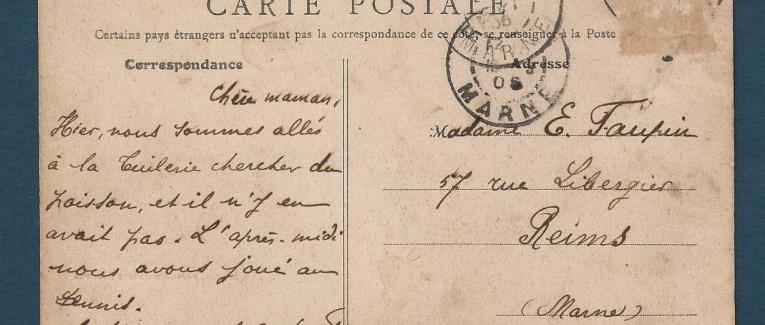 CARTE POSTALE
Certains pays étrangers n'acceptant pas la correspondance de ce côté, se renseigner à la Poste
Correspondance
Chère maman,
Hier, nous sommes allés
à la Tuilerie chercher du
poisson, et il n'y en
avait pas. L'après-midi
nous avons joué au
tennis.
Adresse
Madame E. Taupin
57 rue Libergier
Reims
(Marne)
MARNE
06
MARNE